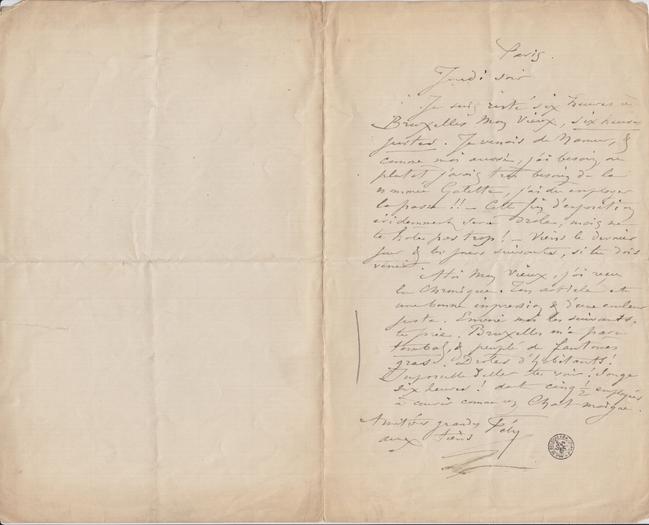 Paris.
Jeudi soir
Je suis resté six heures à
Bruxelles Mon Vieux, six heures
justes. Je venais de Namur, &
comme moi aussi, j'ai besoin, ou
plutôt j'avais très besoin de la
nommée Galette, j'ai dû employer
la passe !! – Cette fin d'exposition
évidemment sera drôle, mais ne
te hâte pas trop ! – Viens le dernier
jour & les jours suivants, si tu dois
venir.
Ah ! Mon Vieux, j'ai reçu
la Chronique. Ton article est
une bonne impression & d'une couleur
juste. Envoie moi les suivants,
te prie. Bruxelles m'a paru
tombal, & peuplé de fantômes
gras. Drôles d'habitants !
Impossible d'aller te voir ! Songe
six heures ! dont cinq 1/2 employées
à courir comme un Chat maigre.
Amitiés grandes Fély
aux tiens